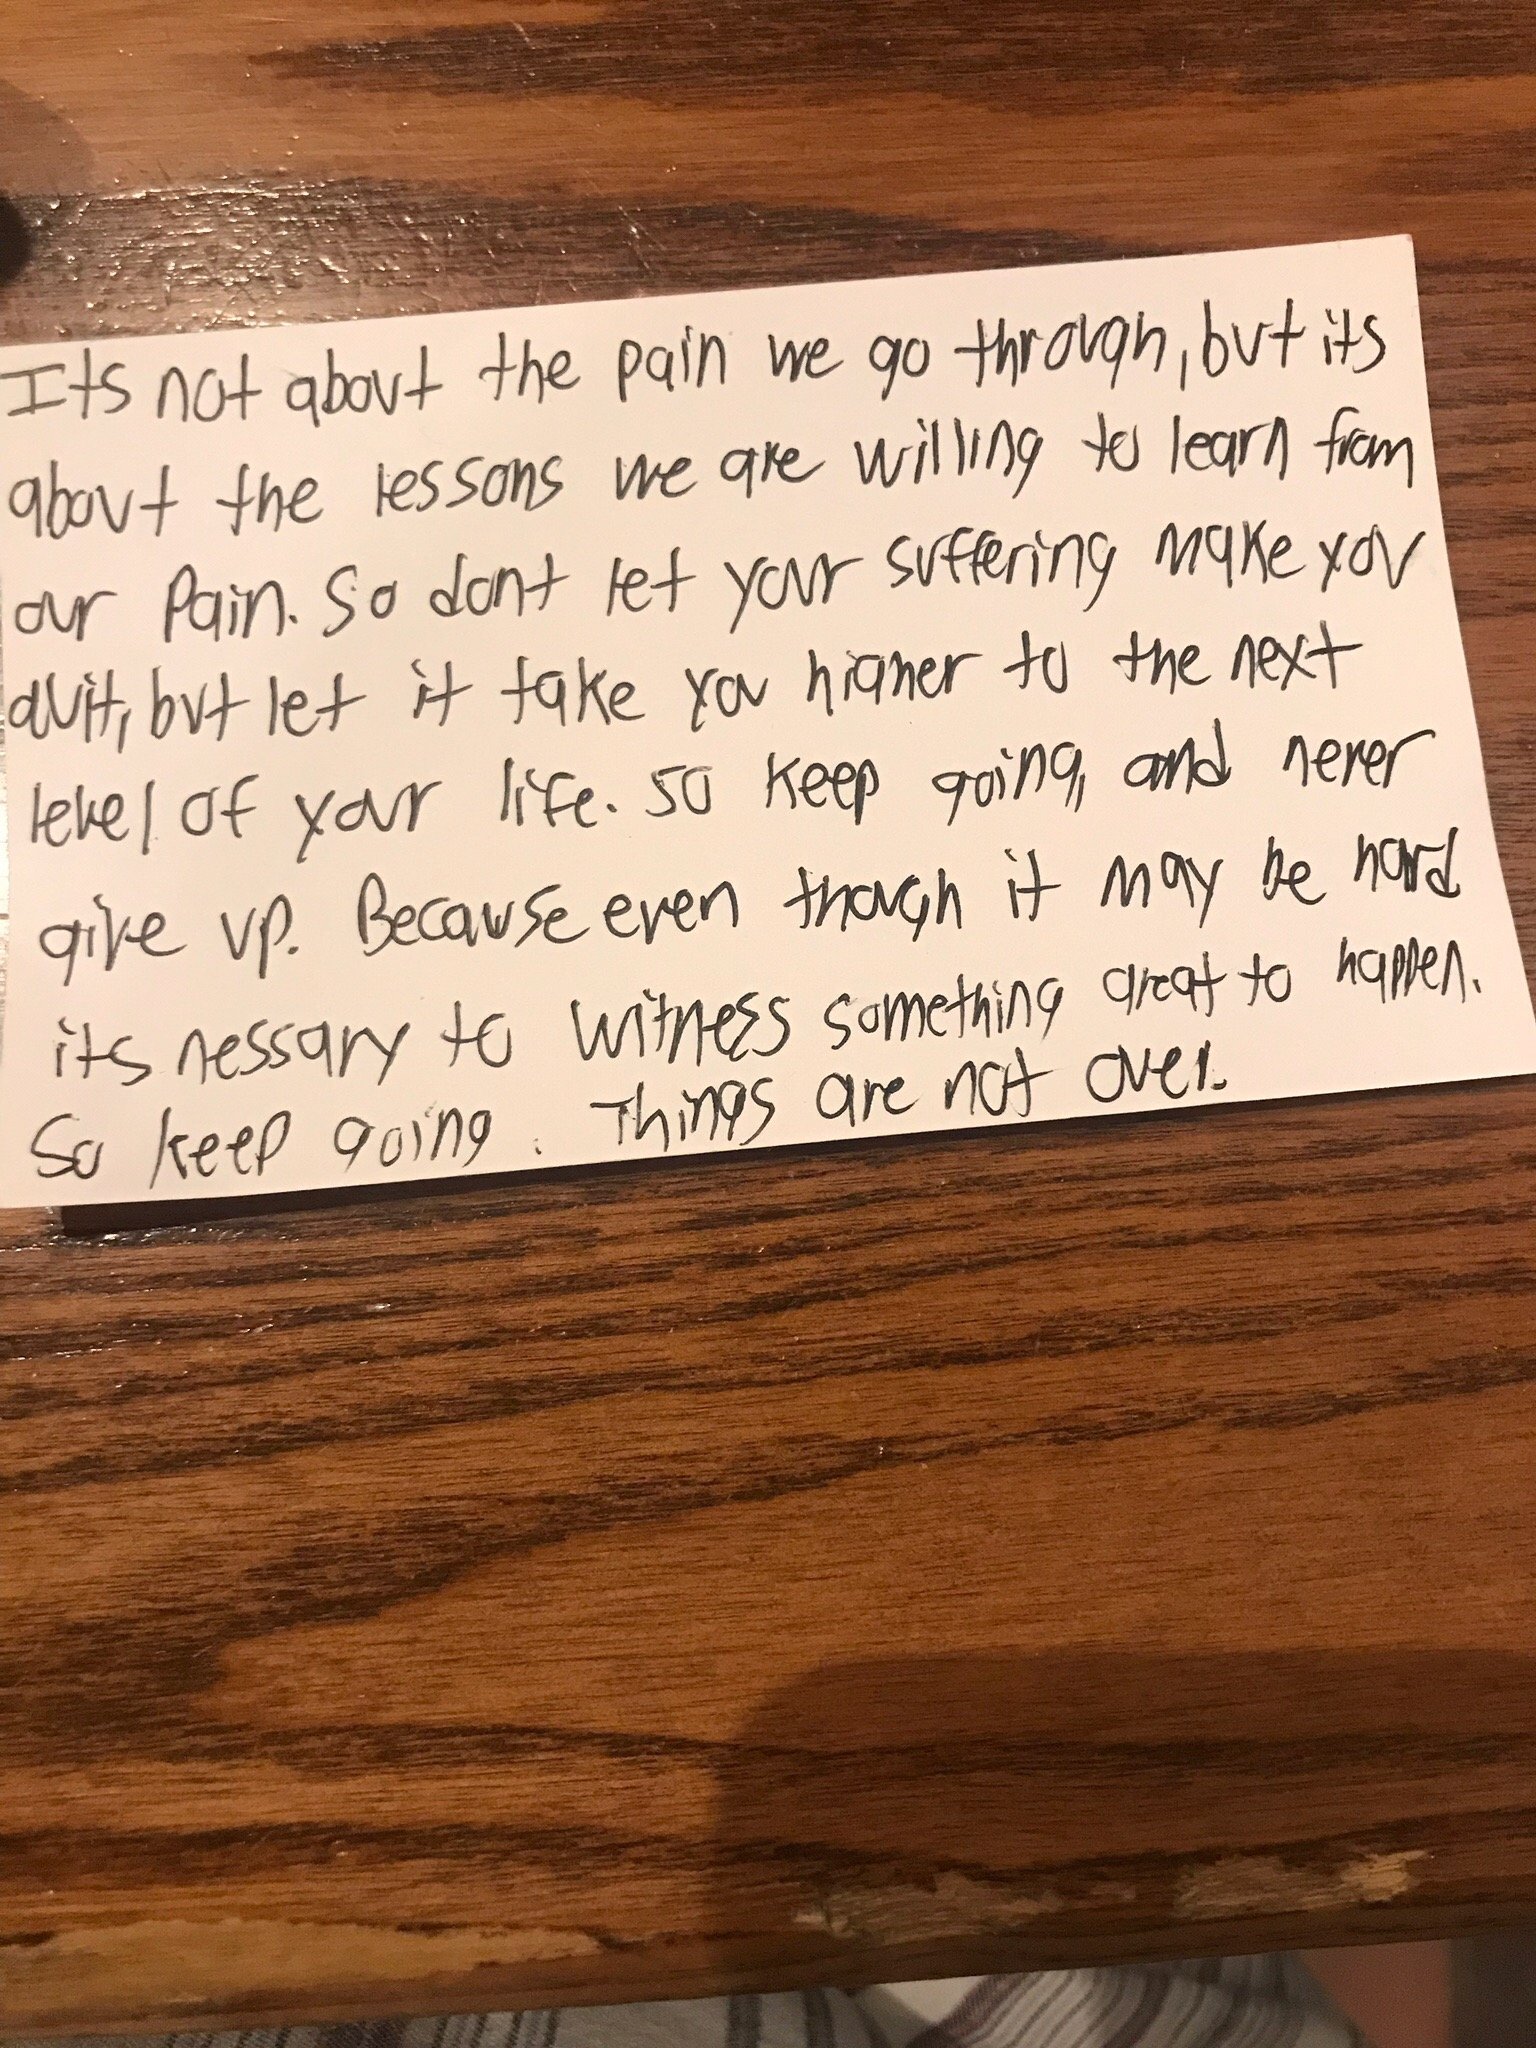 Its not about the pain we go through, but its
about the lessons we are willing to learn from
our Pain. So dont let your suffering make you
quit, but let it take you higher to the next
level of your life. So keep going, and never
give up. Because even though it may be hard
its nessary to witness something great to happen.
So keep going. Things are not over.